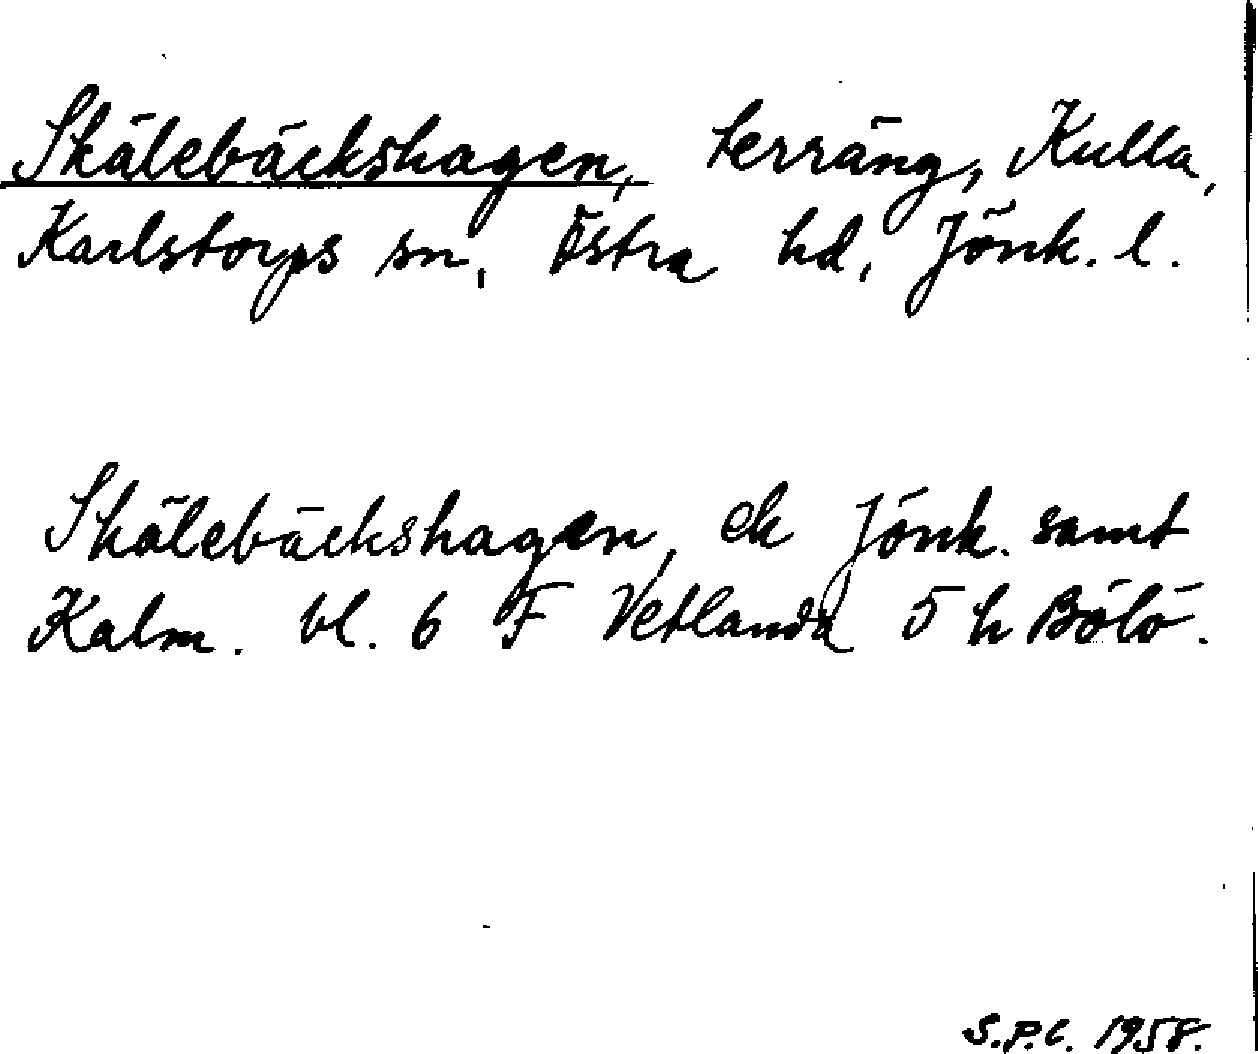 Skälebäckshagen, terräng, Kulla,
Karlstorps sn, Östra hd, Jönk. l.
Skälebäckshagen, ek Jönk. samt
Kalm. bl. 6 F Vetlanda 5 h Bölö.
S.P.C. 1958.